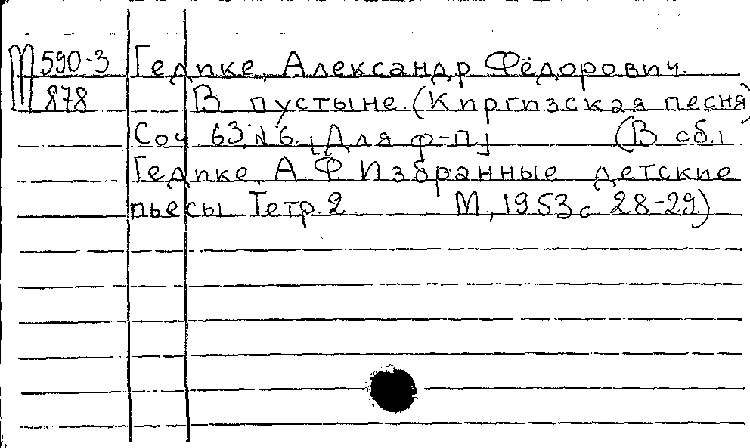 М 590-3 Гедике, Александр Фёдорович.
878 В пустыне. (Киргизская песня)
Соч 63 № 6. [Для ф-п] (В сб.:
Гедике А Ф Избранные детские
пьесы Тетр. 2 М, 1953 с 28-29)